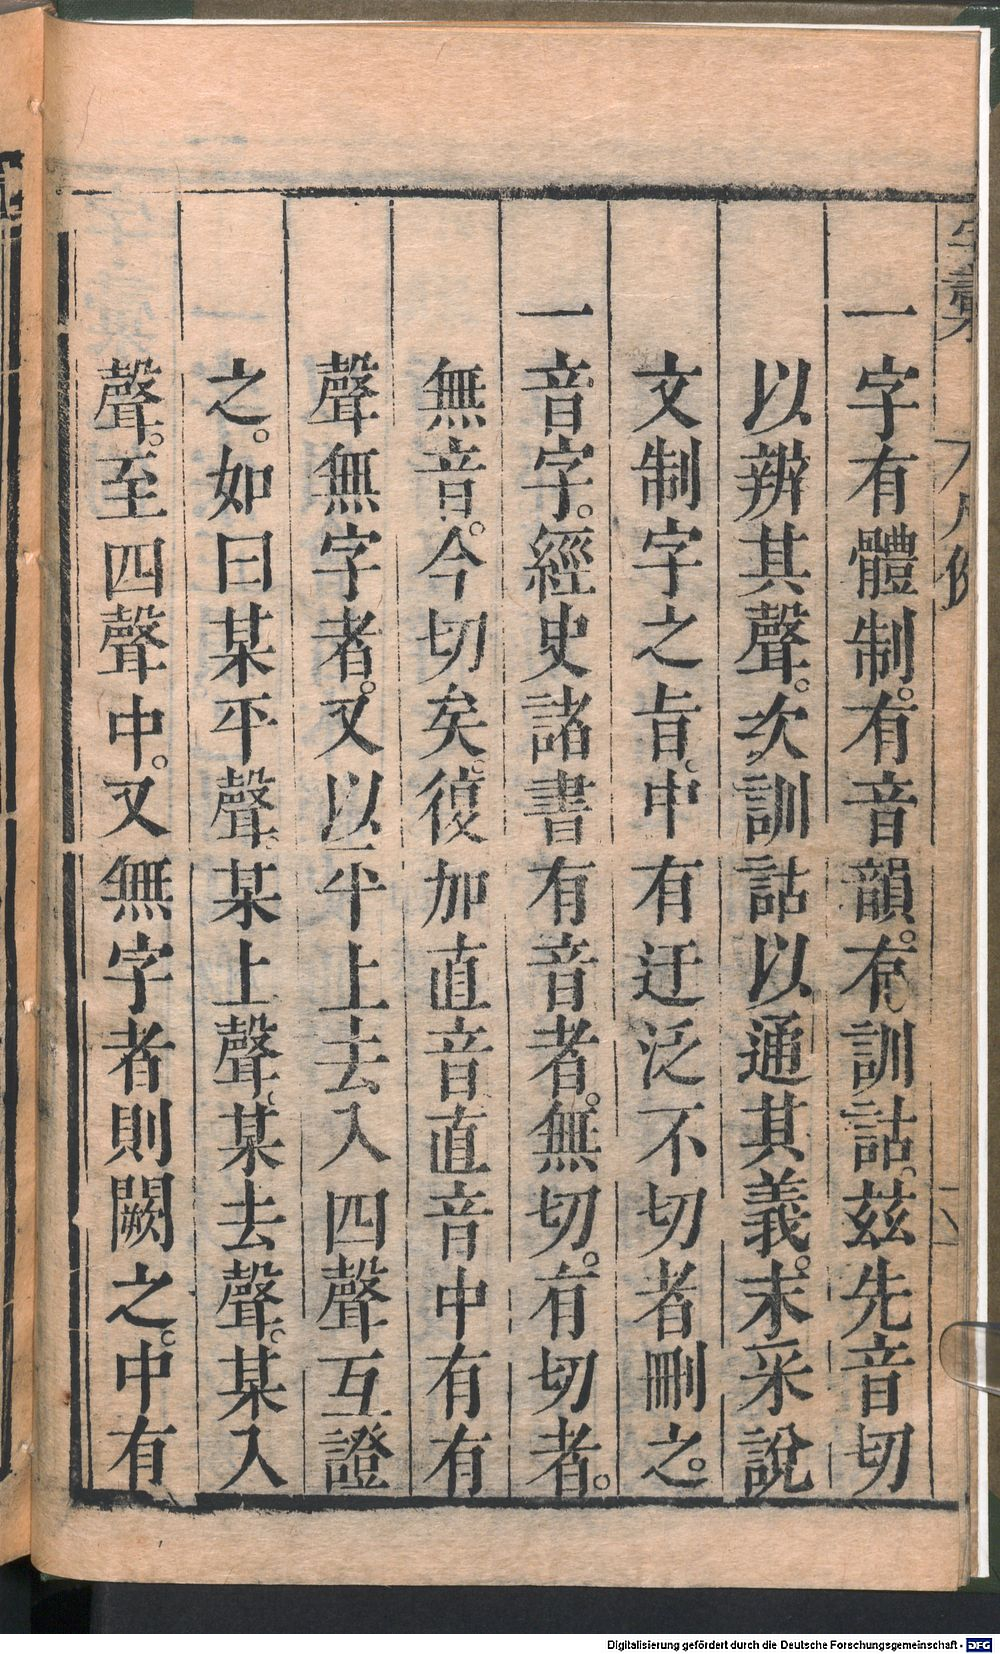 一字有體制。有音韻。有訓詁。茲先音切
以辨其聲。次訓詁以通其義。末采說
文制字之旨。中有迂泛不切者刪之。
一音字。經史諸書有音者。無切。有切者。
無音。今切矣。復加直音直音中有有
聲無字者。又以平上去入四聲互證
之。如曰某平聲。某上聲。某去聲。某入
聲。至四聲中。又無字者則闕之。中有
Digitalisierung gefördert durch die Deutsche Forschungsgemeinschaft - DFG